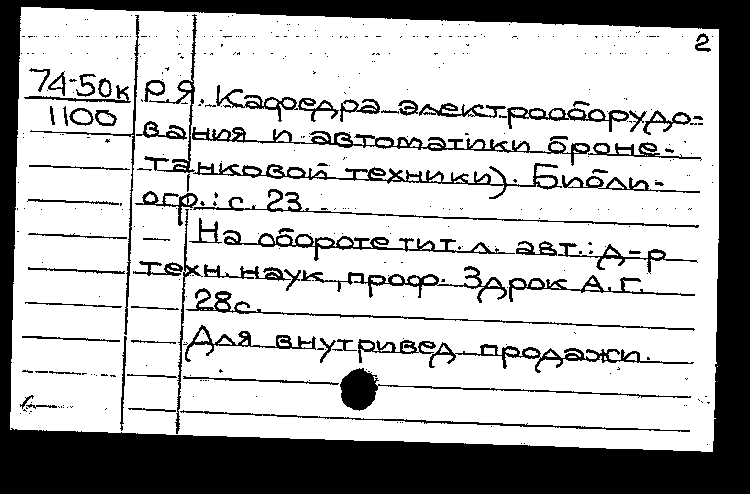 2
74-50к Р.Я. Кафедра электрооборудо-
1100
вания и автоматики броне-
танковой техники). Библи-
огр.: с. 23.
— На обороте тит. л. авт.: д-р
техн. наук, проф. Здрок А.Г.
28с.
Для внутривед. продажи.